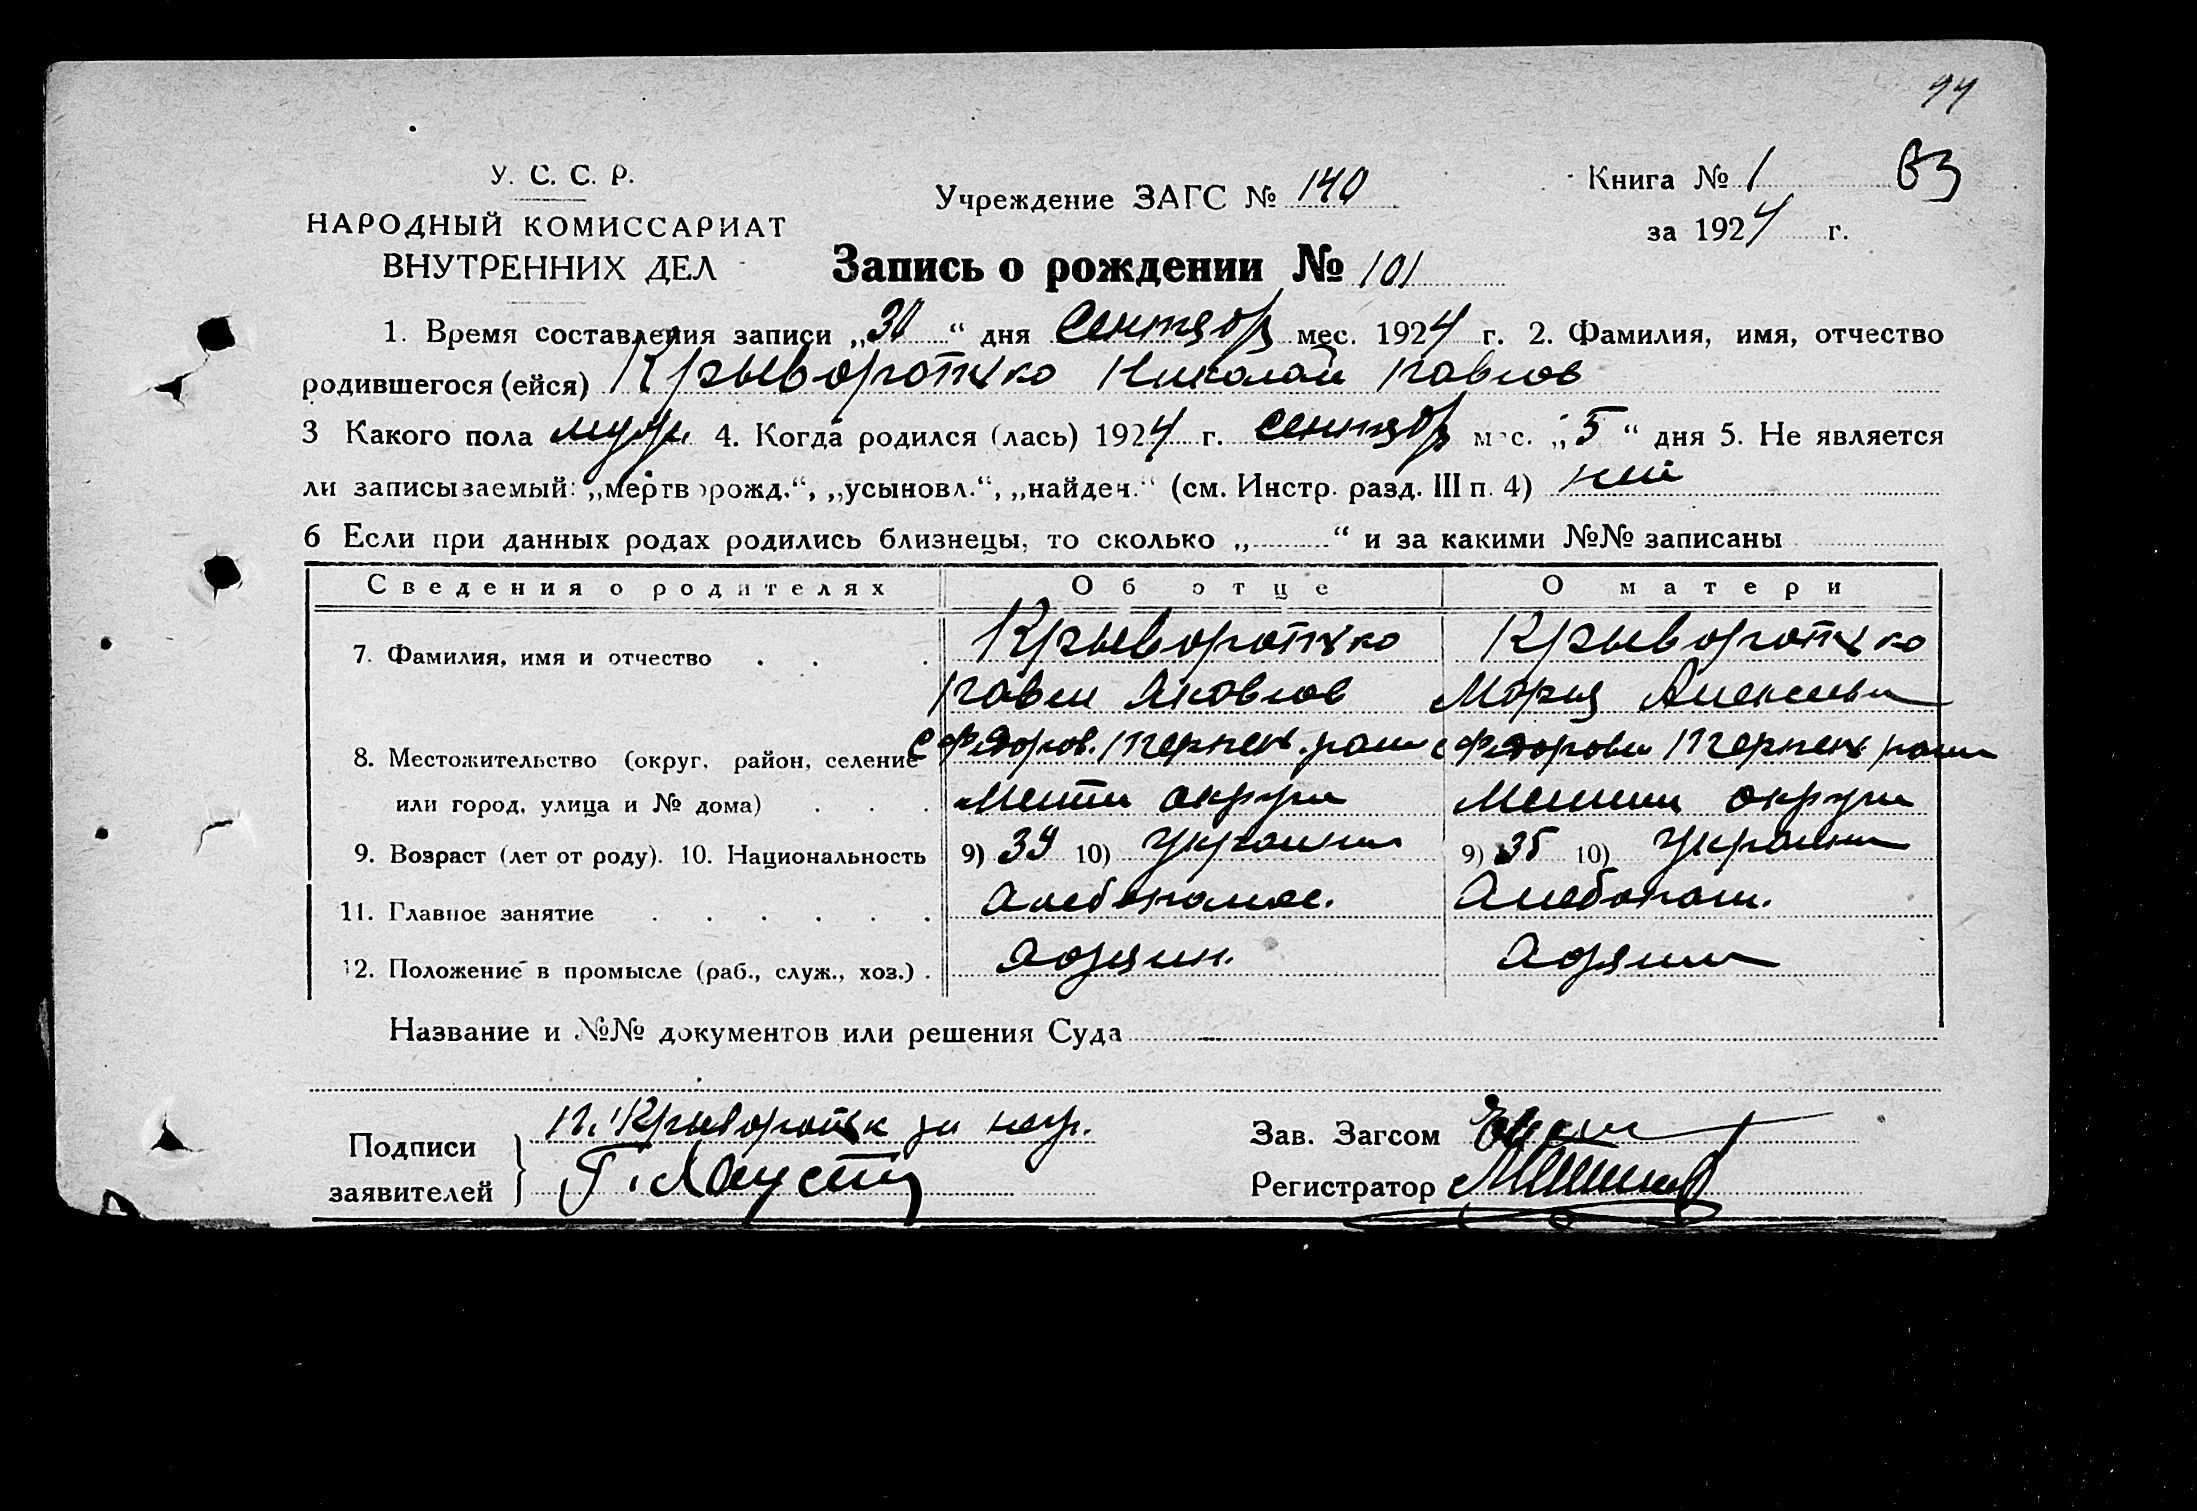 94
У. С. С. Р.
НАРОДНЫЙ КОМИССАРИАТ
ВНУТРЕННИХ ДЕЛ
Учреждение ЗАГС № 140
Книга № 1 83
за 1924 г.
Запись о рождении № 101
1. Время составления записи „30" дня Сентябр мес. 1924 г. 2. Фамилия, имя, отчество
родившегося (ейся) Крыворотько Николай Павлов
3 Какого пола муж. 4. Когда родился (лась) 1924 г. сентябр мес. „5" дня 5. Не является
ли записываемый: „мертворожд.", „усыновл.", „найден." (см. Инстр. разд. III п. 4)
6 Если при данных родах родились близнецы, то сколько „ " и за какими №№ записаны
Сведения о родителях Об отце О матери
7. Фамилия, имя и отчество Крыворотько Крыворотько
Павел Яковлов Мария Алексеевн
8. Местожительство (округ, район, селение с Федоров.
или город, улица и № дома) округи округи
9. Возраст (лет от роду). 10. Национальность 9) 39 10) Украин 9) 35 10) Украин
11. Главное занятие Хлебопаш. Хлебопаш.
12. Положение в промысле (раб., служ., хоз.)
Название и №№ документов или решения Суда
Подписи П. Крыворотьк за негр.
заявителей
Зав. Загсом
Регистратор